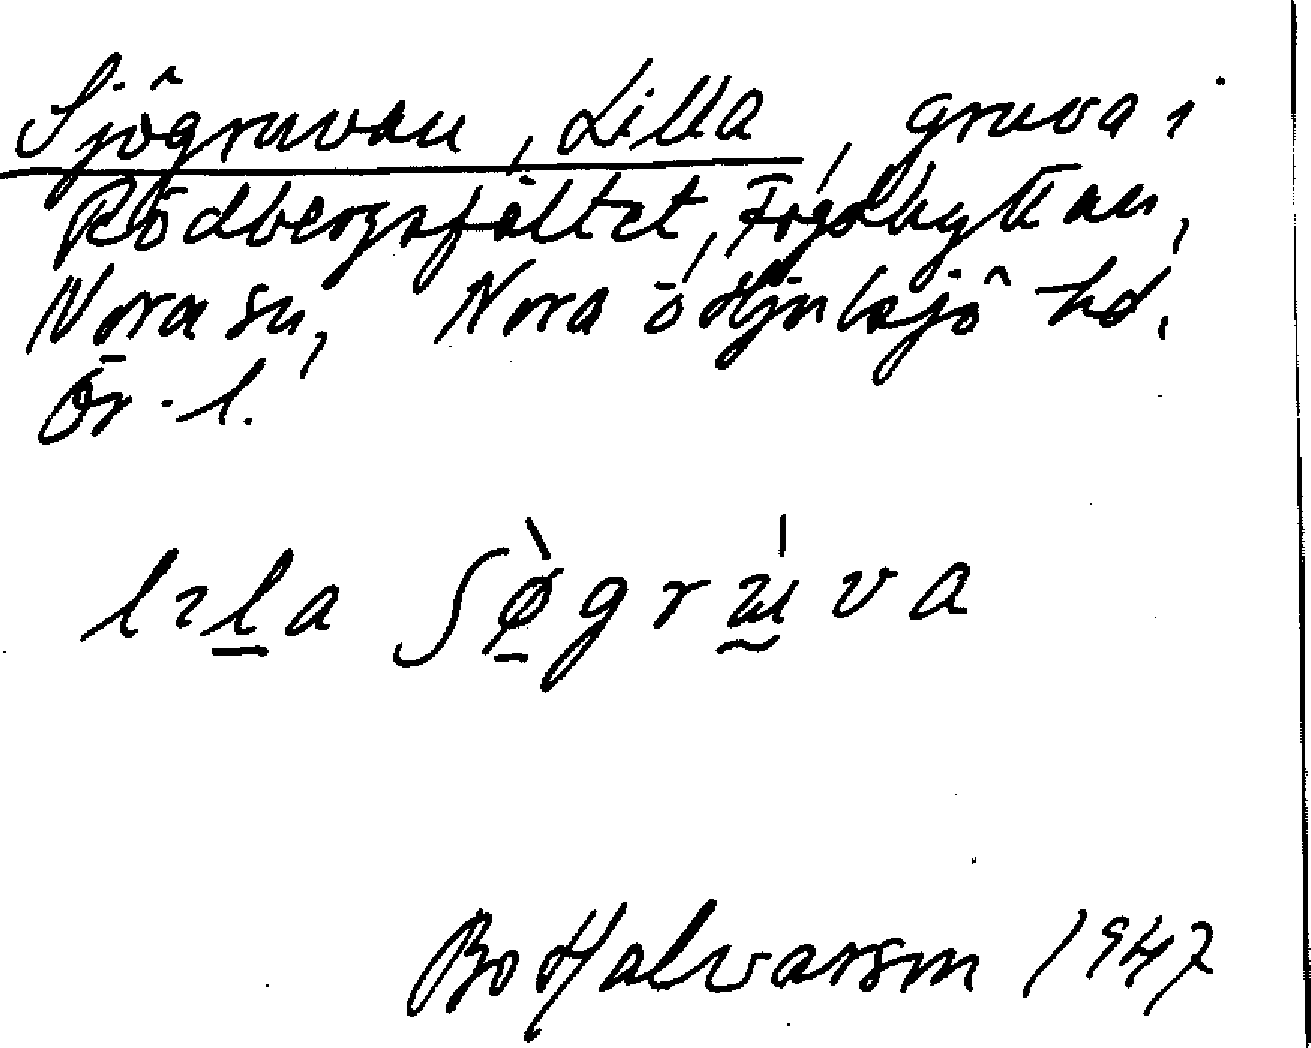 Sjögruvan, Lilla, gruva i
Rödbergsfältet, Fogdhyttan,
Nora sn, Nora o Hjulsjö hd.
Ör. l.
lɪla ʃø̀gru̍va
Bo Halvarson 1947